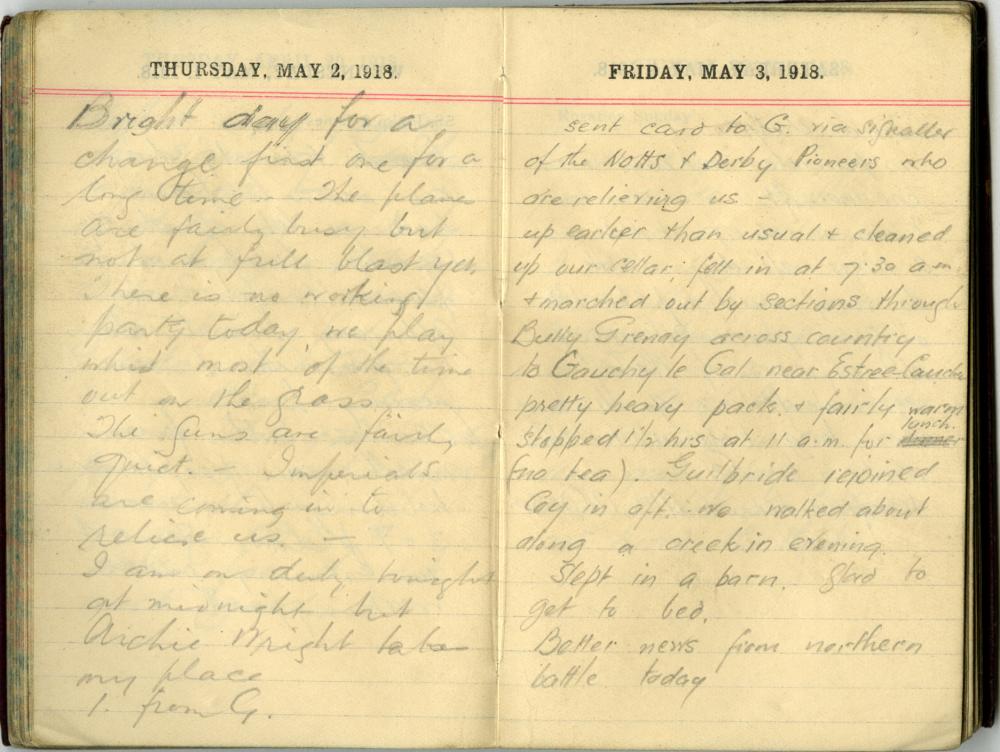 THURSDAY, MAY 2, 1918.
Bright day for a
change first one for a
long time - The planes
are fairly busy but
not at full blast yet.
There is no working
party today we play
whist most of the time
out on the grass
The guns are fairly
quiet. - Imperials
are coming in to
relieve us. -
I am on duty tonight
at midnight but
Archie Wright takes
my place
1. from G.
FRIDAY, MAY 3, 1918.
sent card to G. via signaller
of the Notts & Derby Pioneers who
are relieving us -
up earlier than usual & cleaned
up our cellar; fell in at 7.30 a.m.
& marched out by sections through
Bully Grenay across country
to Gauchy le Gal near Estree-Cauchie
pretty heavy pack. & fairly warm
lunch.
stopped 1½ hrs at 11 a.m. for dinner
(no tea). Guilbride rejoined
Coy in aft. we walked about
along a creek in evening.
Slept in a barn. Glad to
get to bed.
Better news from northern
battle today